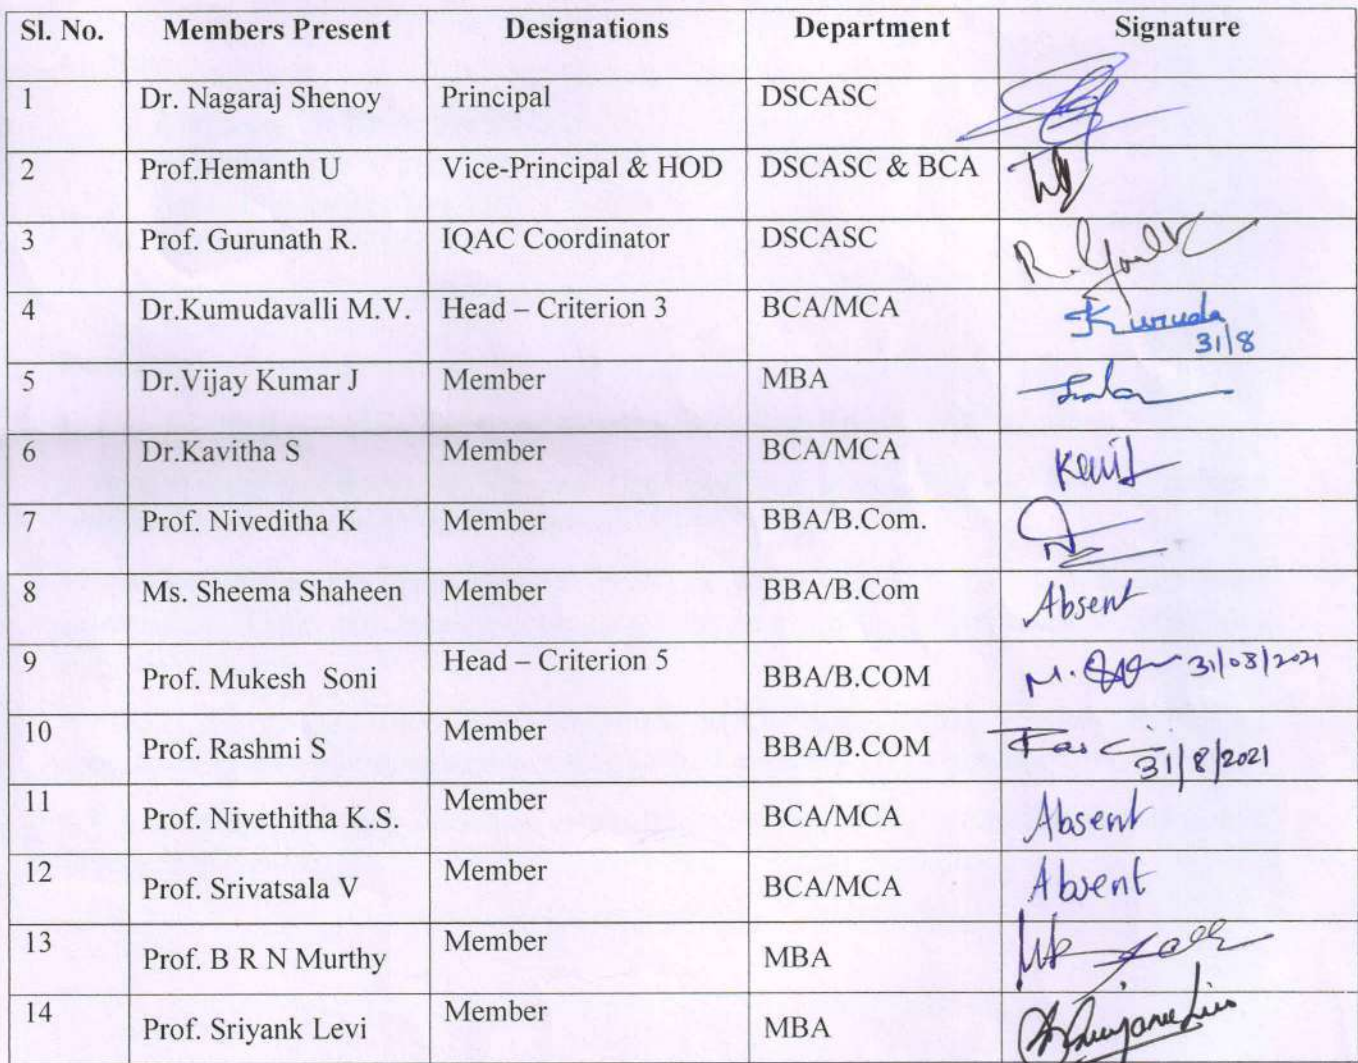 Sl. No. Members Present Designations Department Signature
1 Dr. Nagaraj Shenoy Principal DSCASC
2 Prof.Hemanth U Vice-Principal & HOD DSCASC & BCA
3 Prof. Gurunath R. IQAC Coordinator DSCASC
4 Dr.Kumudavalli M.V. Head – Criterion 3 BCA/MCA
31/8
5 Dr.Vijay Kumar J Member MBA
6 Dr.Kavitha S Member BCA/MCA
7 Prof. Niveditha K Member BBA/B.Com.
8 Ms. Sheema Shaheen Member BBA/B.Com Absent
9 Prof. Mukesh Soni Head – Criterion 5 BBA/B.COM M. 31/03/2021
10 Prof. Rashmi S Member BBA/B.COM
31/8/2021
11 Prof. Nivethitha K.S. Member BCA/MCA Absent
12 Prof. Srivatsala V Member BCA/MCA Absent
13 Prof. B R N Murthy Member MBA
14 Prof. Sriyank Levi Member MBA